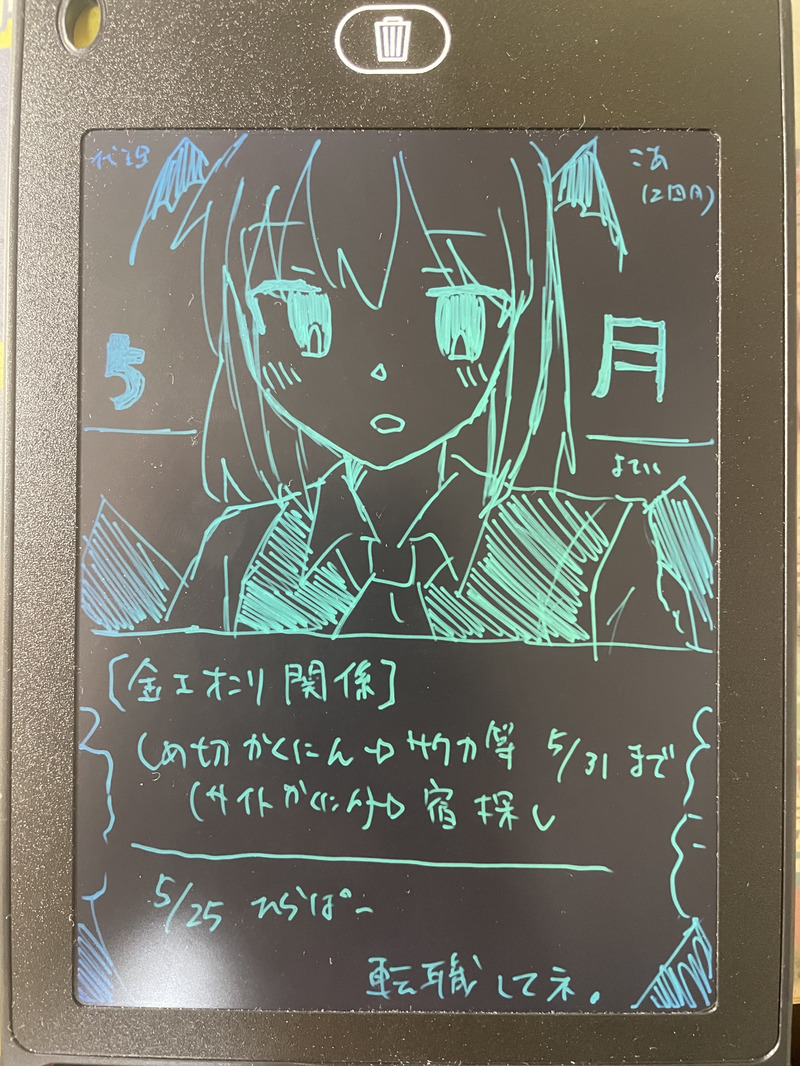 こあ
(2回目)
5月
よてい
[金工オニリ関係]
しめ切かくにん→サクカ等 5/31まで
(サイトかくにん)→宿探し
5/25 ひらぱー
転職してネ。